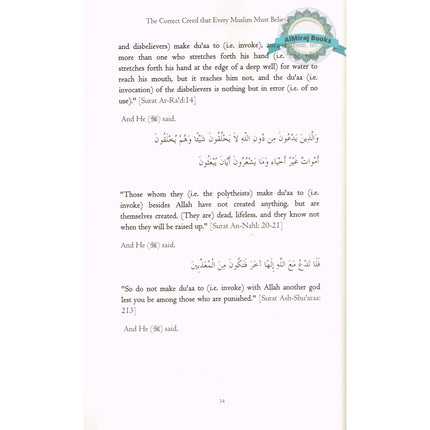 The Correct Creed that Every Muslim Must Believ
AlMiraj Books
and disbelievers) make du'aa to (i.e. invoke),
more than one who stretches forth his hand (i.e.
stretches forth hand at the edge of a deep well) for water to
reach his mouth, but it reaches him not, and the du'aa (i.e.
invocation) of the disbelievers is nothing but in error (i.e. of no
use)." [Surat Ar-Ra'd:14]
And He (ﷻ) said,
وَالَّذِينَ يَدْعُونَ مِن دُونِ اللَّهِ لَا يَخْلُقُونَ شَيْئًا وَهُمْ يُخْلَقُونَ
أَمْوَاتٌ غَيْرُ أَحْيَاء وَمَا يَشْعُرُونَ أَيَّانَ يُبْعَثُونَ
"Those whom they (i.e. the polytheists) make du'aa to (i.e.
invoke) besides Allah have not created anything, but are
themselves created. (They are) dead, lifeless, and they know not
when they will be raised up." [Surat An-Nahl: 20-21]
And He (ﷻ) said,
فَلَا تَدْعُ مَعَ اللَّهِ إِلَهًا آخَرَ فَتَكُونَ مِنَ الْمُعَذَّبِينَ
"So do not make du'aa to (i.e. invoke) with Allah another god
lest you be among those who are punished." [Surat Ash-Shu'araa:
213]
And He (ﷻ) said,
34